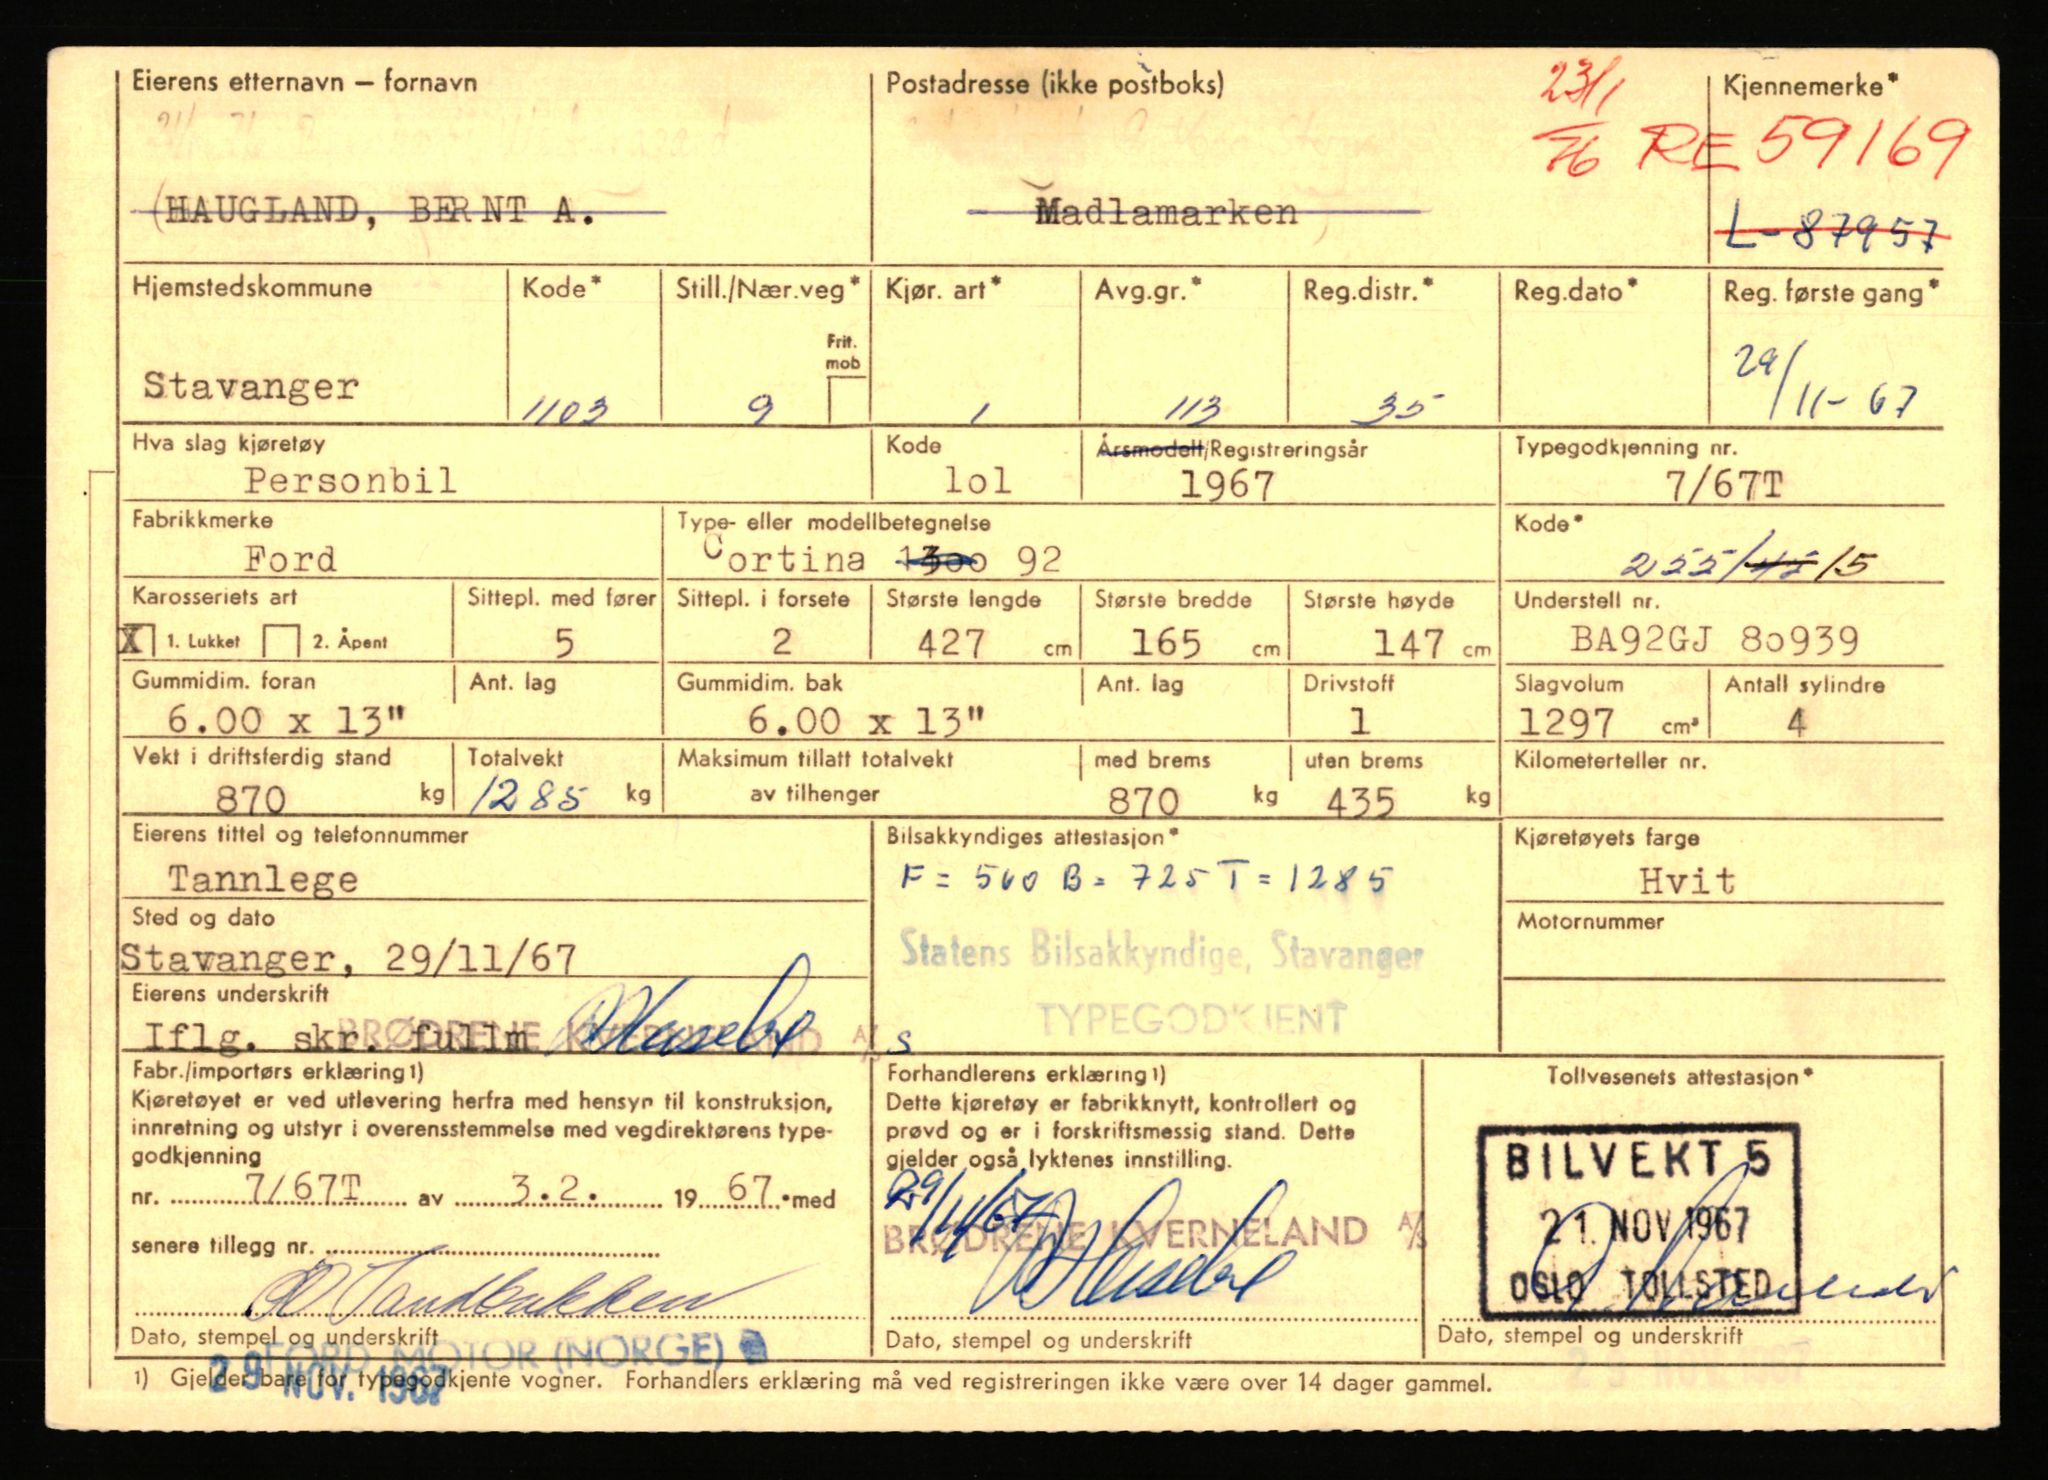 Eierens etternavn – fornavn
Postadresse (ikke postboks)
23/1
76
Kjennemerke*
RE 59169
(HAUGLAND, BERNT A.
Madlamarken
L-87957
Hjemstedskommune
Kode*
Still./Nær.veg*
Kjør. art*
Avg.gr.*
Reg.distr.*
Reg.dato*
Reg. første gang*
Frit.
mob
Stavanger
1103
9
1
113
35
29/11-67
Hva slag kjøretøy
Kode
Årsmodell/Registreringsår
Typegodkjenning nr.
Personbil
lol
1967
7/67T
Fabrikkmerke
Type- eller modellbetegnelse
Kode*
Ford
Cortina 1300 92
255/42/5
Karosseriets art
Sittepl. med fører
Sittepl. i forsete
Største lengde
Største bredde
Største høyde
Understell nr.
X 1. Lukket 2. Åpent
5
2
427 cm
165 cm
147 cm
BA92GJ 8o939
Gummidim. foran
Ant. lag
Gummidim. bak
Ant. lag
Drivstoff
Slagvolum
Antall sylindre
6.00 x 13"
6.00 x 13"
1
1297 cm³
4
Vekt i driftsferdig stand
Totalvekt
Maksimum tillatt totalvekt
med brems
uten brems
Kilometerteller nr.
870 kg
1285 kg
av tilhenger
870 kg
435 kg
Eierens tittel og telefonnummer
Bilsakkyndiges attestasjon*
Kjøretøyets farge
Tannlege
F = 560 B = 725 T = 1285
Hvit
Sted og dato
Motornummer
Stavanger, 29/11/67
Statens Bilsakkyndige, Stavanger
Eierens underskrift
TYPEGODKJENT
Iflg. skr. fullm
BRØDRENE KVERNELAND A/S
Fabr./importørs erklæring 1)
Kjøretøyet er ved utlevering herfra med hensyn til konstruksjon,
innretning og utstyr i overensstemmelse med vegdirektørens type-
godkjenning
nr. 7/67T av 3.2. 1967. med
senere tillegg nr.
Dato, stempel og underskrift
FORD MOTOR (NORGE)
29 NOV. 1967
Forhandlerens erklæring 1)
Dette kjøretøy er fabrikknytt, kontrollert og
prøvd og er i forskriftsmessig stand. Dette
gjelder også lyktenes innstilling.
29/11/67
BRØDRENE KVERNELAND A/S
Dato, stempel og underskrift
Tollvesenets attestasjon*
BILVEKT 5
21. NOV 1967
OSLO TOLLSTED
Dato, stempel og underskrift
1) Gjelder bare for typegodkjente vogner. Forhandlers erklæring må ved registreringen ikke være over 14 dager gammel.